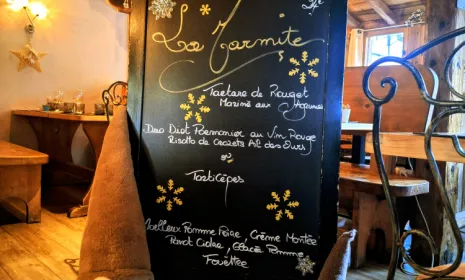 La Marmite
Tartare de Rouget
Mariné aux Agrumes
Duo Diot Pormonier au Vin Rouge
Risotto de Crozets Ail des Ours
ou
Tarticêpes
Moelleux Pomme Poire, Crème Montée
Parfait Cidre, Glace Pomme
Fouettée